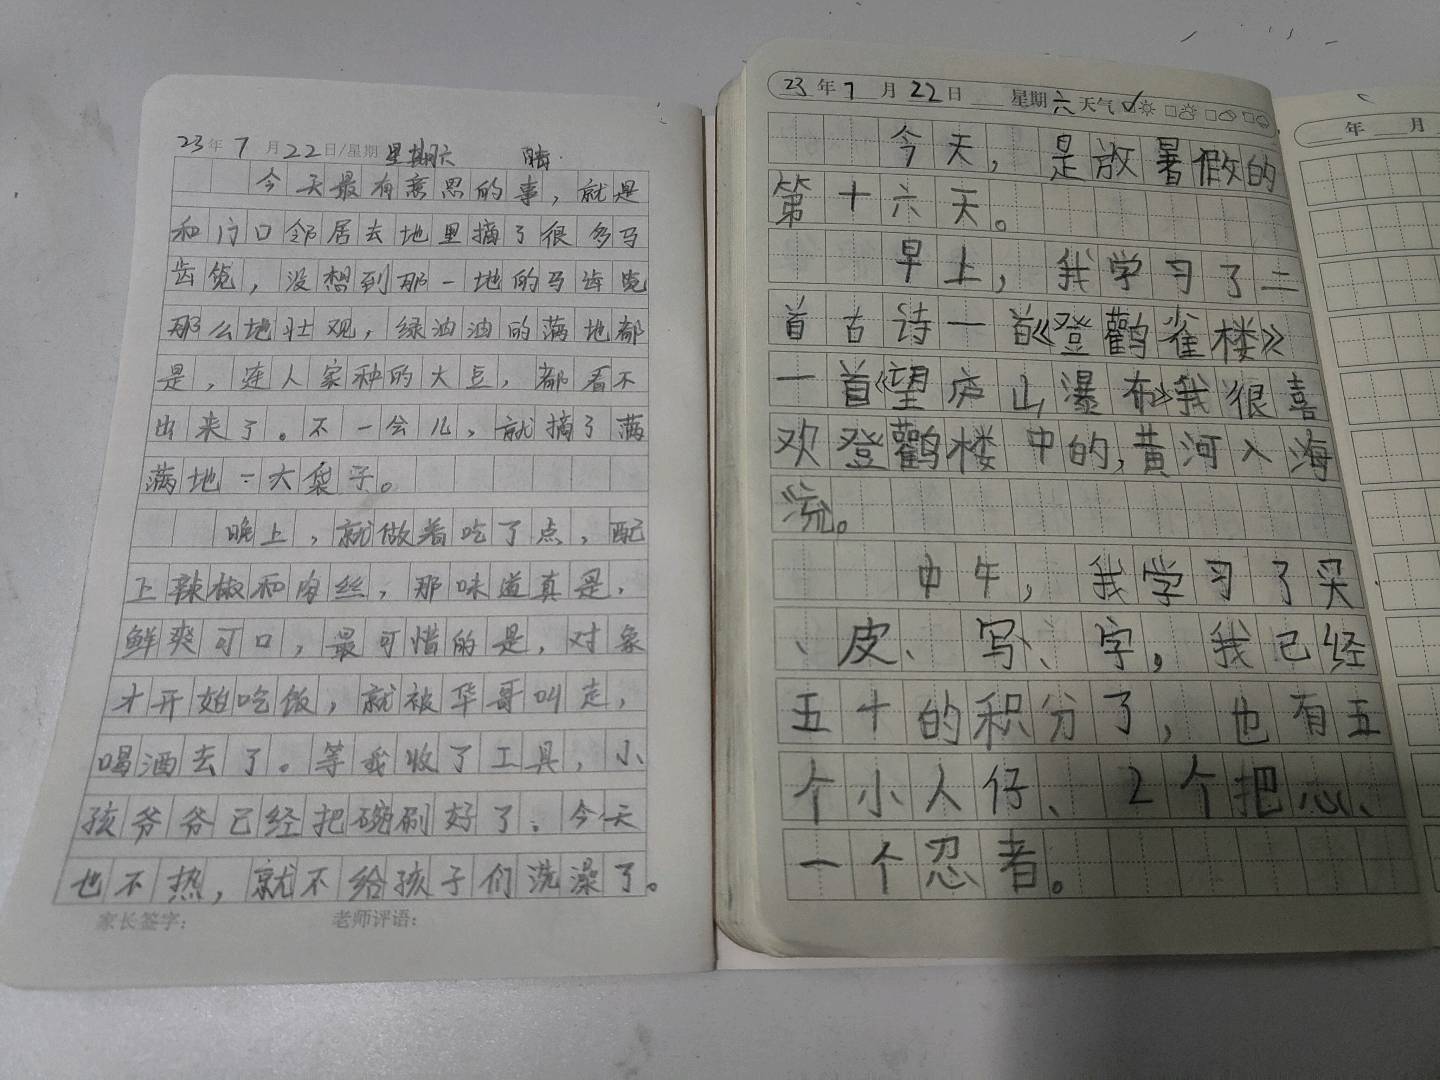 23年 7月22日/星期 星期六 晴
今天最有意思的事，就是
和门口邻居去地里摘了很多马
齿苋，没想到那一地的马齿苋
那么地壮观，绿油油的满地都
是，连人家种的大豆，都看不
出来了。不一会儿，就摘了满
满地一大袋子。
晚上，就做着吃了点，配
上辣椒和肉丝，那味道真是，
鲜爽可口，最可惜的是，对象
才开始吃饭，就被华哥叫走，
喝酒去了。等我收了工具，小
孩爷爷已经把碗刷好了。今天
也不热，就不给孩子们洗澡了。
家长签字： 老师评语：
23年7月22日 星期六 天气 ✓
今天，是放暑假的
第十六天。
早上，我学习了二
首古诗一首《登鸛雀楼》
一首《望庐山瀑布》我很喜
欢登鸛楼中的，黄河入海
流。
中午，我学习了买
、皮、写、字，我已经
五十的积分了，也有五
个小人仔、2个把心、
一个忍者。
年 月